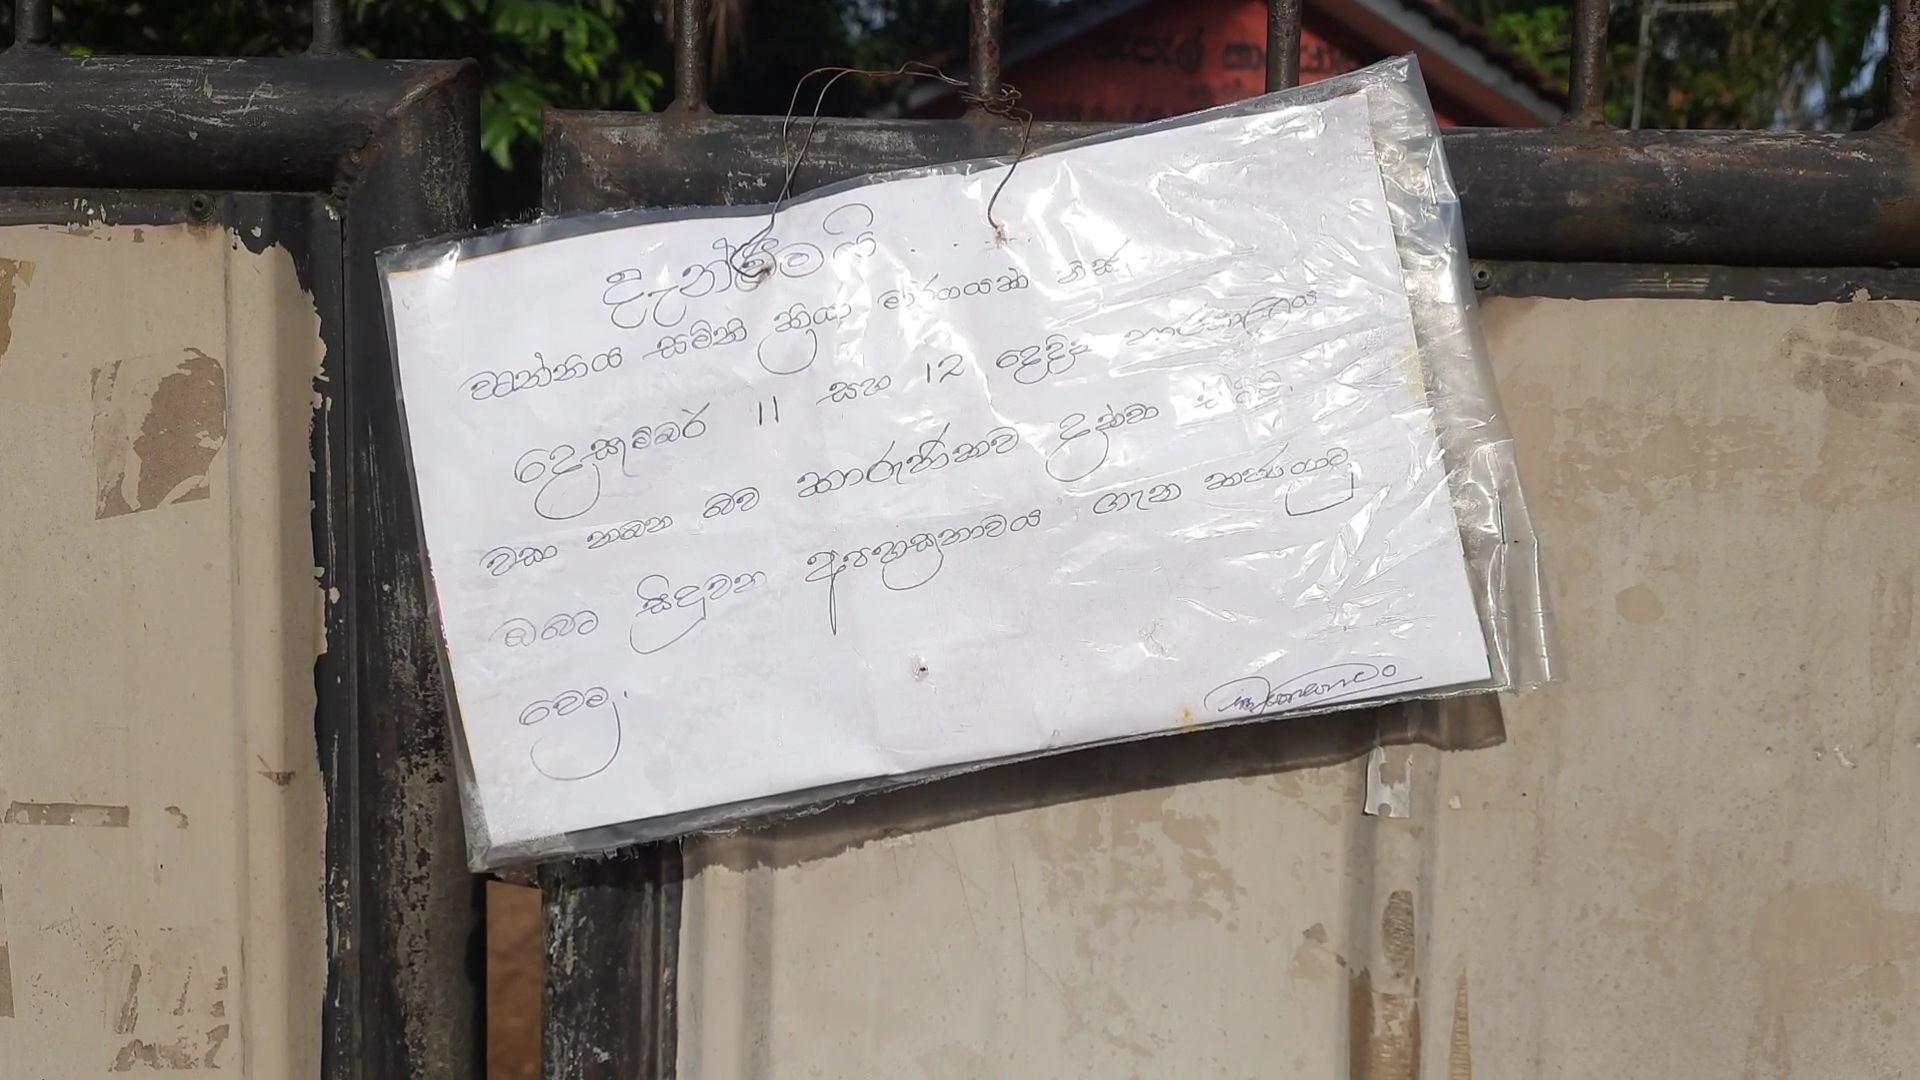 දැන්වීමයි...
වෘත්තීය සමිති ක්‍රියා මාර්ගයක් නිසා
දෙසැම්බර් 11 සහ 12 දෙදින කාර්යාලය
වසා තබන බව කාරුණිකව දන්වා සිටිමු.
ඔබට සිදුවන අපහසුතාවය ගැන කණගාටු
වෙමු.